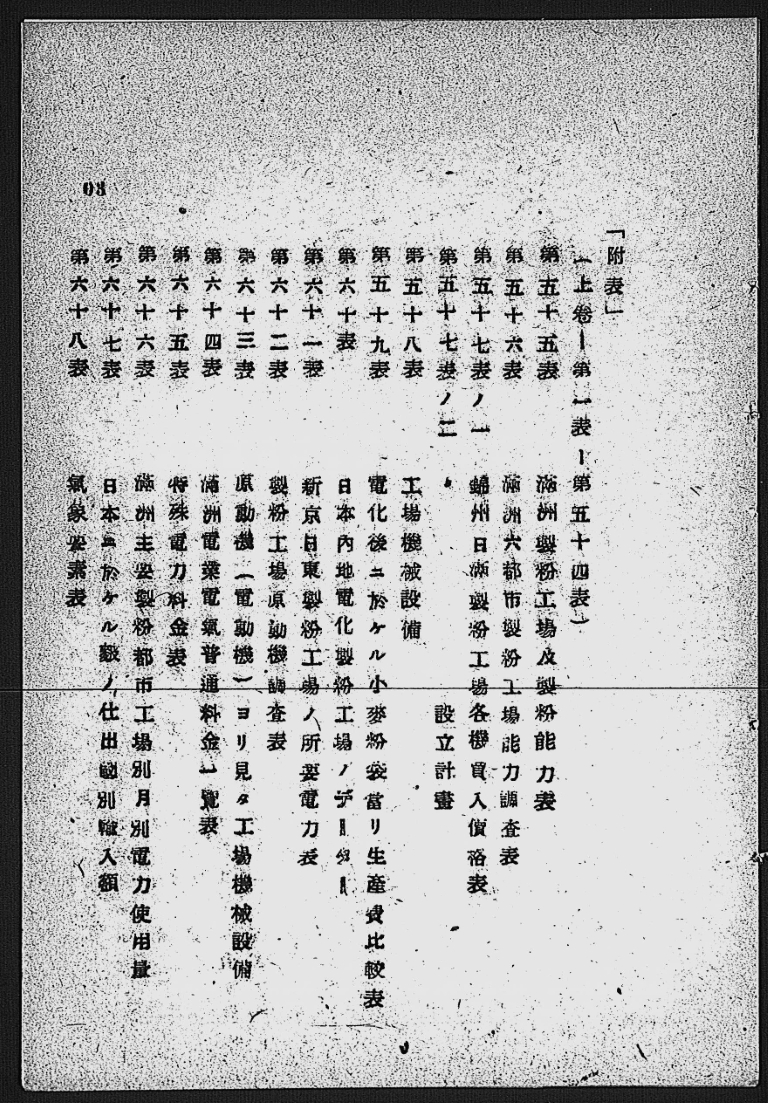 「附表」
(上卷ー第一表ー第五十四表)
第五十五表 滿洲製粉工場及製粉能力表
第五十六表 滿洲六都市製粉工場能力調査表
第五十七表ノ一 錦州日滿製粉工場各機買入價格表
第五十七表ノ二 〃 設立計畫
第五十八表 工場機械設備
第五十九表 電化後ニ於ケル小麥粉袋當リ生産費比較表
第六十表 日本內地電化製粉工場ノデーター
第六十一表 新京日東製粉工場ノ所要電力表
第六十二表 製粉工場原動機調査表
第六十三表 原動機(電動機)ヨリ見タ工場機械設備
第六十四表 滿洲電業電氣普通料金一覽表
第六十五表 特殊電力料金表
第六十六表 滿洲主要製粉都市工場別月別電力使用量
第六十七表 日本ニ於ケル麩ノ仕出國別輸入額
第六十八表 氣象要素表